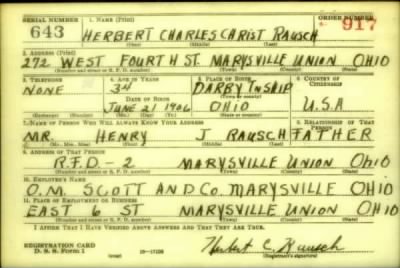 SERIAL NUMBER 1. NAME (Print) ORDER NUMBER
643 HERBERT CHARLES CHRIST RAUSCH 917
(First) (Middle) (Last)
2. ADDRESS (Print)
272 WEST FOURTH ST. MARYSVILLE UNION OHIO
(Number and street or R. F. D. number) (Town) (County) (State)
3. TELEPHONE 4. AGE IN YEARS 5. PLACE OF BIRTH 6. COUNTRY OF CITIZENSHIP
NONE 34 DARBY TNSHIP
DATE OF BIRTH (Town or county)
JUNE 21 1906 OHIO U.S.A
(Exchange) (Number) (Mo.) (Day) (Yr.) (State or country)
7. NAME OF PERSON WHO WILL ALWAYS KNOW YOUR ADDRESS 8. RELATIONSHIP OF THAT PERSON
MR. HENRY J RAUSCH FATHER
(Mr., Mrs., Miss) (First) (Middle) (Last)
9. ADDRESS OF THAT PERSON
R.F.D-2 MARYSVILLE UNION OHIO
(Number and street or R. F. D. number) (Town) (County) (State)
10. EMPLOYER'S NAME
O.M. SCOTT AND CO. MARYSVILLE OHIO
11. PLACE OF EMPLOYMENT OR BUSINESS
EAST 6 ST MARYSVILLE UNION OHIO
(Number and street or R. F. D. number) (Town) (County) (State)
I AFFIRM THAT I HAVE VERIFIED ABOVE ANSWERS AND THAT THEY ARE TRUE.
REGISTRATION CARD
D. S. S. Form 1 (over) Herbert C. Rausch
(Registrant's signature)